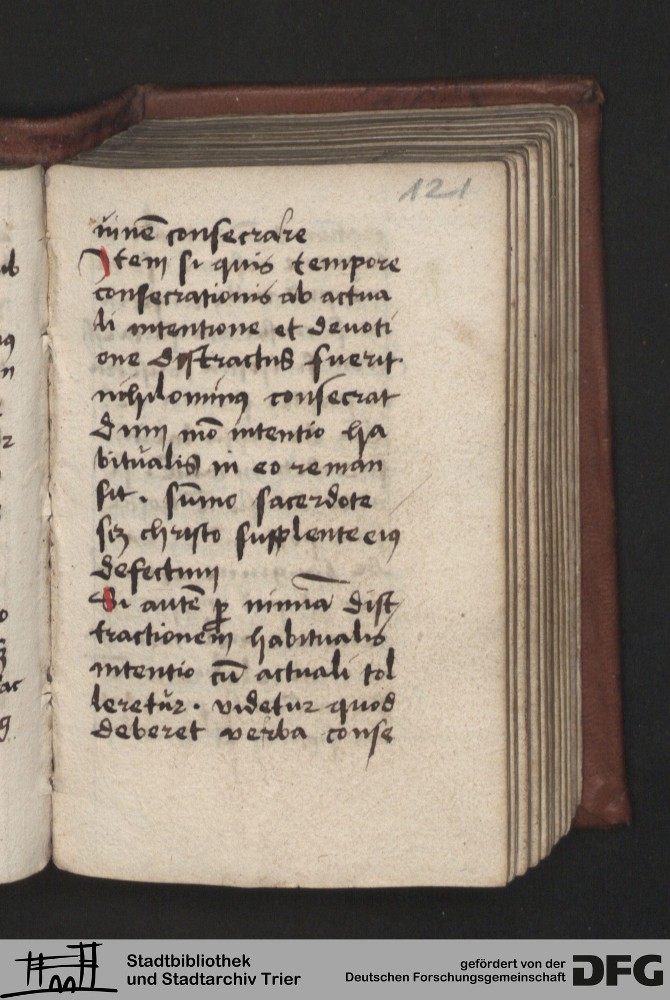 121
consecrare
Item si quis tempore
consecrationis ab actua
li intentione et deuoti
one distractus fuerit
nihilominꝰ consecrat
Dum mō intentio ha
bitualis in eo reman
sit. sūmo sacerdote
scꝫ christo supplente eiꝰ
defectum
Si autē ꝑ nimiā dist
tractionem habitualis
intentio cū actuali tol
leretur. videtur quod
deberet verba conse
Stadtbibliothek
und Stadtarchiv Trier
gefördert von der
Deutschen Forschungsgemeinschaft
DFG